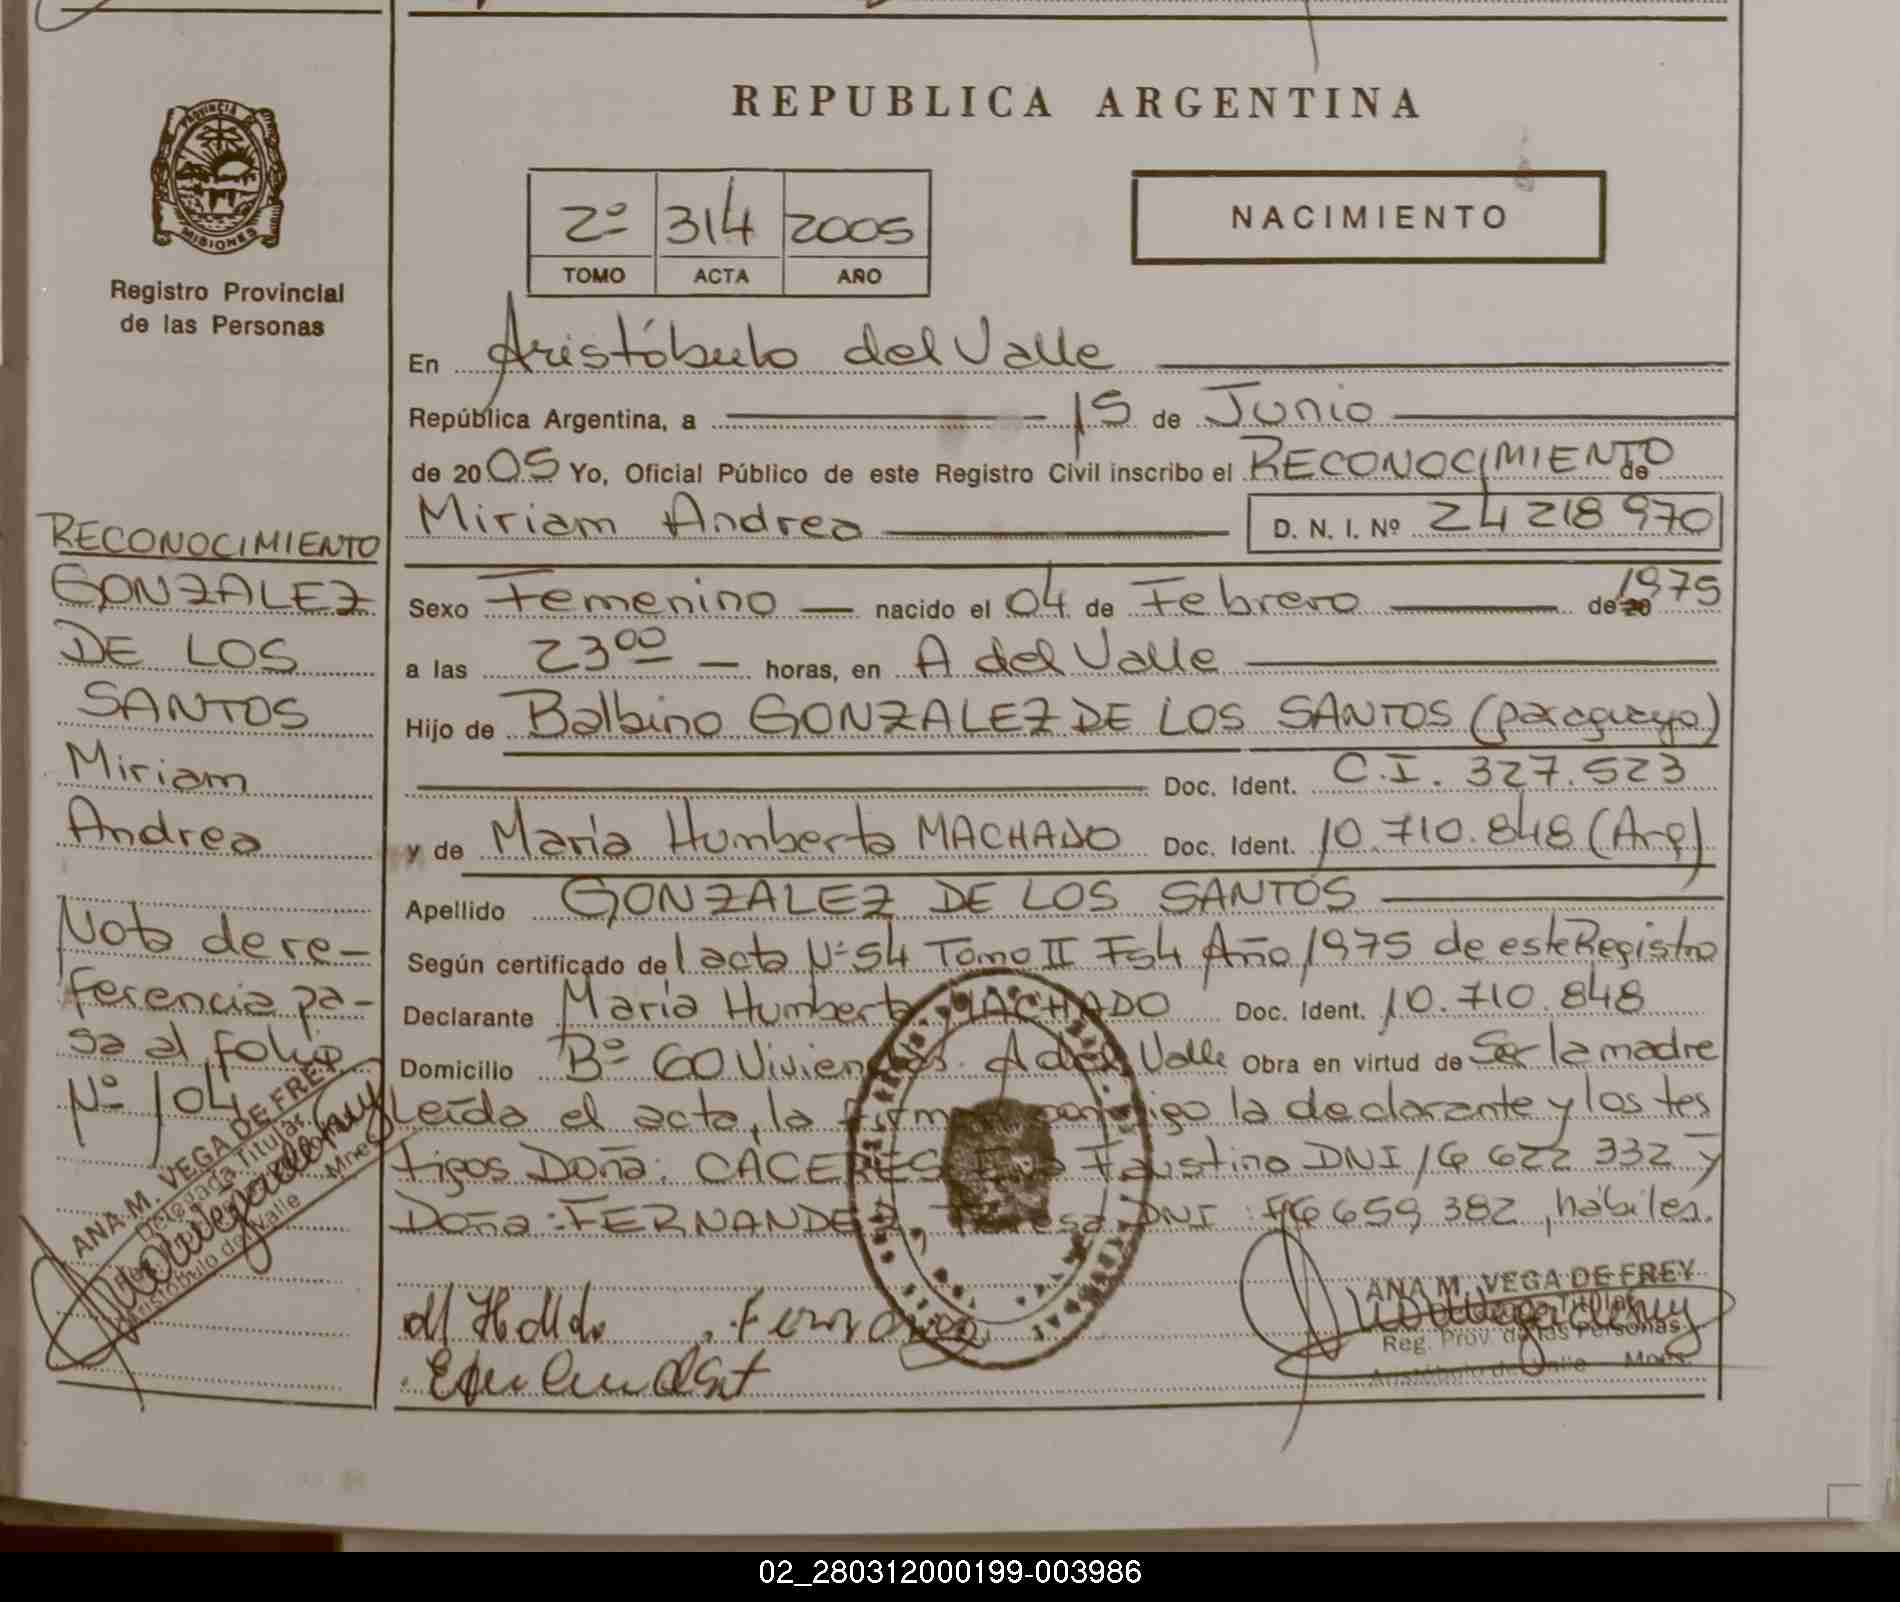 REPUBLICA ARGENTINA
PROVINCIA DE
MISIONES
Registro Provincial
de las Personas
2º 314 2005
TOMO ACTA AÑO
NACIMIENTO
En Aristóbulo del Valle
República Argentina, a 15 de Junio
de 2005 Yo, Oficial Público de este Registro Civil inscribo el RECONOCIMIENTO de
Miriam Andrea D. N. I. Nº 24 218 970
Sexo Femenino nacido el 04 de Febrero de 1975
a las 23 00 horas, en A del Valle
Hijo de Balbino GONZALEZ DE LOS SANTOS (paraguayo)
Doc. Ident. C.I. 327.523
y de María Humberta MACHADO Doc. Ident. 10.710.848 (Arg)
Apellido GONZALEZ DE LOS SANTOS
Según certificado de l acta Nº 54 Tomo II F54 Año 1975 de este Registro
Declarante María Humberta MACHADO Doc. Ident. 10.710.848
Domicilio Bº 60 Viviendas. A del Valle Obra en virtud de Ser la madre
Leída el acta, la firma conmigo la declarante y los tes
tigos Doña: CACERES Faustina DNI 16 622 332 y
Doña: FERNANDEZ, Teresa DNI: 16 659 382, hábiles.
ANA M. VEGA DE FREY
Delegada Titular
Reg. Prov. de las Personas
Aristóbulo del Valle Mnes.
RECONOCIMIENTO
GONZALEZ
DE LOS
SANTOS
Miriam
Andrea
Nota de re-
ferencia pa-
sa al folio
Nº 104
ANA M. VEGA DE FREY
Delegada Titular
Aristóbulo del Valle Mnes
02_280312000199-003986